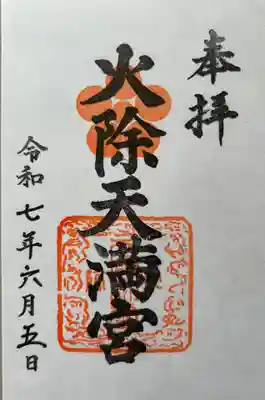 奉拝
火除天満宮
令和七年六月五日